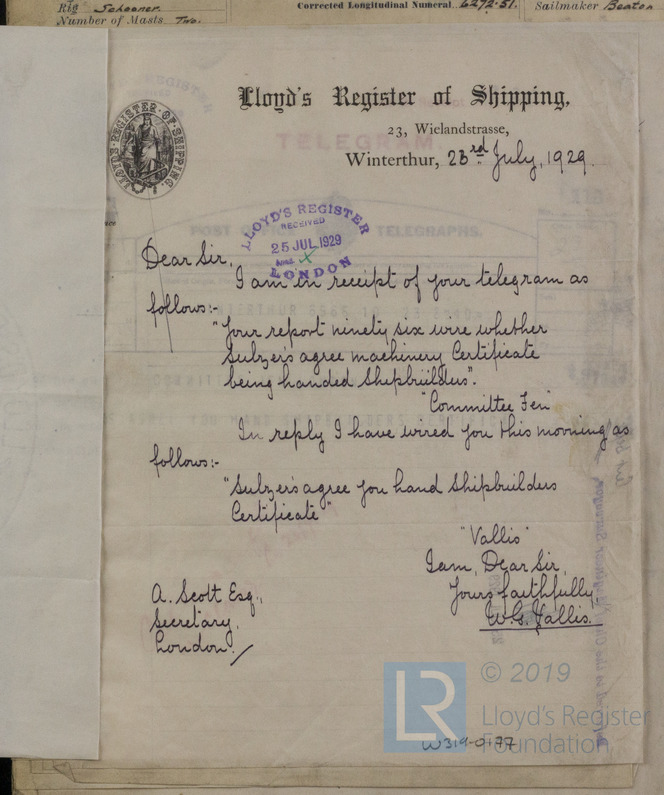 Rig Schooner.
Number of Masts Two.
Corrected Longitudinal Numeral 6292.51.
Sailmaker Beaton
Lloyd's Register of Shipping,
23, Wielandstrasse,
Winterthur, 23rd July, 1929.
LLOYD'S REGISTER OF SHIPPING.
TELEGRAM.
POST TELEGRAPHS.
LLOYD'S REGISTER
RECEIVED
25 JUL 1929
Ansd. X
LONDON
Dear Sir,
I am in receipt of your telegram as
follows:-
"Your report ninety six wire whether
Sulzers agree machinery Certificate
being handed Shipbuilders".
"Committee Fen"
In reply I have wired you this morning as
follows:-
"Sulzers agree you hand Shipbuilders
Certificate"
"Vallis"
I am, Dear Sir,
Yours faithfully
W.G. Vallis.
A. Scott Esq.,
Secretary,
London.
LR
© 2019
Lloyd's Register
Foundation
W319-0177